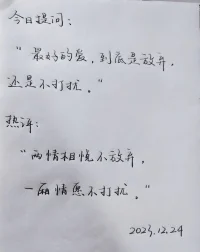 今日提问：
“最好的爱，到底是放弃，
还是不打扰。”
热评：
“两情相悦不放弃，
一厢情愿不打扰。”
2023.12.24